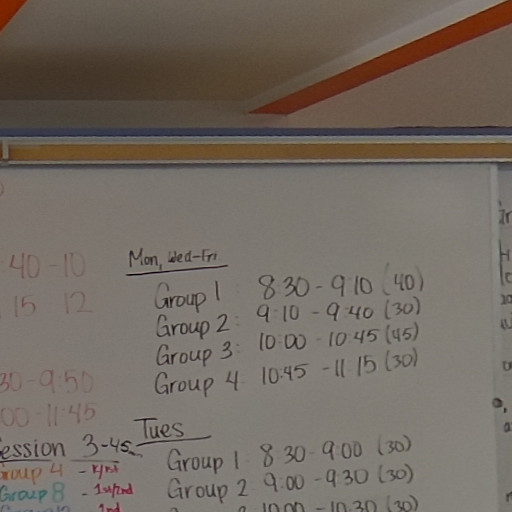 40-10
15 12
30-9:50
00-11:45
Session 3-45
Group 4 - K/1st
Group 8 - 1st/2nd
2nd
Mon, Wed-Fri
Group 1 8:30-9:10 (40)
Group 2: 9:10 - 9:40 (30)
Group 3: 10:00 - 10:45 (45)
Group 4 10:45 - 11:15 (30)
Tues
Group 1 8:30-9:00 (30)
Group 2 9:00-9:30 (30)
10:00-10:30 (30)